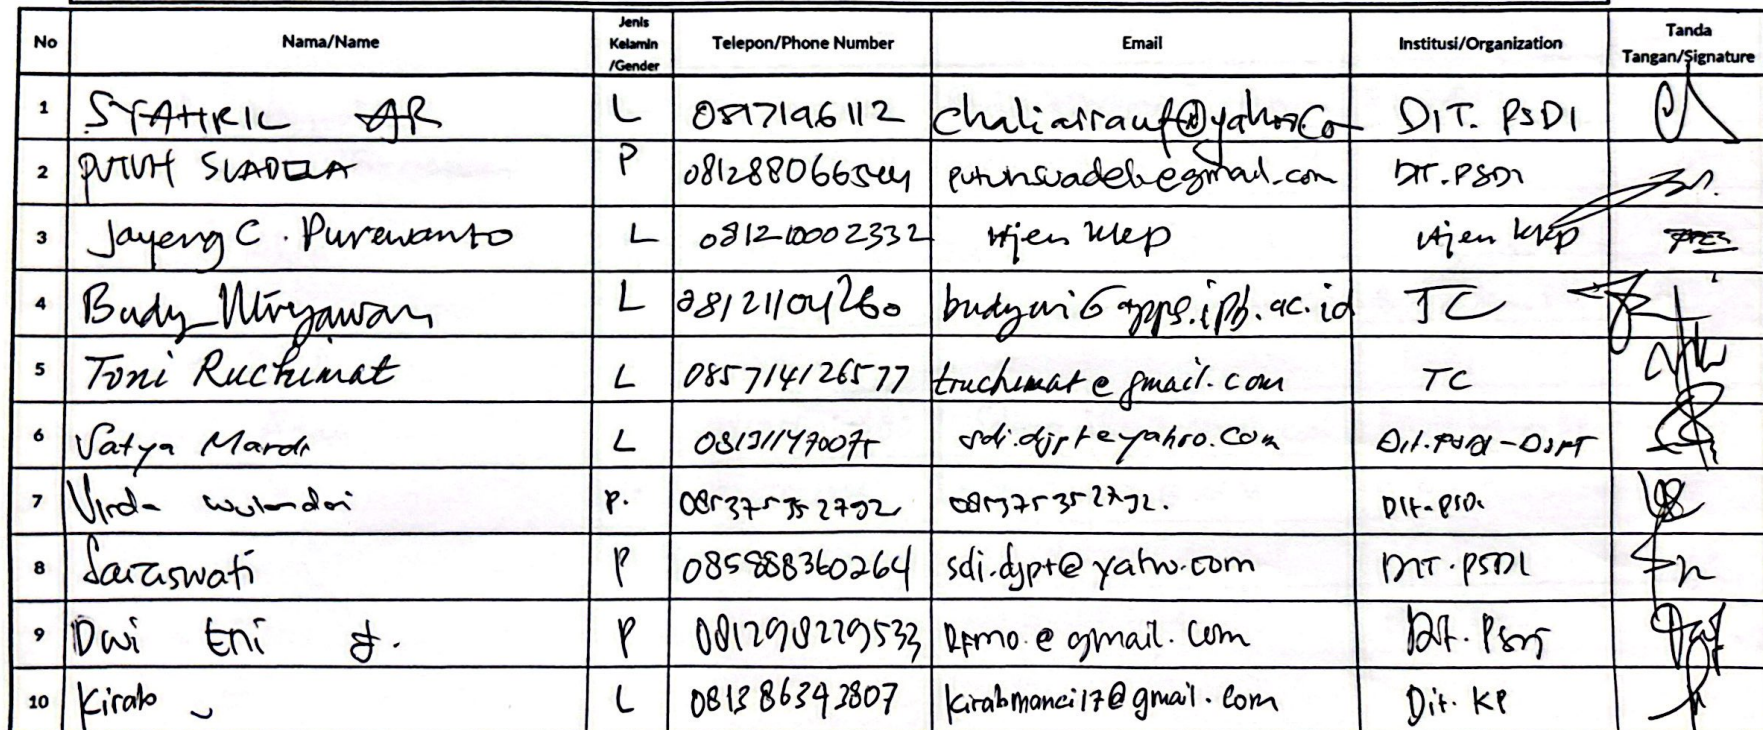 No Nama/Name Jenis Kelamin /Gender Telepon/Phone Number Email Institusi/Organization Tanda Tangan/Signature
1 SYAHRIL AR L 0817196112 DIT. PSDI
2 PUTUH SUADELA P putuhsuadela@gmail.com DIT. PSDI
3 Jayeng C. Purewanto L 081210002332
4 Budy Wiryawan L 08121104260 budywi@apps.ipb.ac.id TC
5 Toni Ruchimat L 085714126577 truchimat@gmail.com TC
6 Satya Mardi L sdi.djpt@yahoo.com Dit. PSDI-DJPT
7 Virda wulandari P. 085375352792 085375352792. Dit-PSDI
8 Saraswati P 085888360264 sdi.djpt@yahoo.com DIT. PSDI
9 Dwi Eni P 081298229533 gmail.com Dit. PSDI
10 Kirab L 081386343807 kirabmanci17@gmail.com Dit. KP